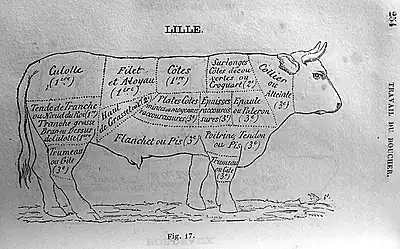 LILLE.
234
TRAVAIL DU BOUCHER.
Culotte
(1re)
Filet
et Aloyau
(1re)
Côtes
(1re)
Surlonges
Côtes décou-
vertes ou
Croquart (2e)
Collier
ou
Atteinte
(3e)
Tende de Tranche
ou Noeud du Roi (1re)
Tranche grasse
Bran ou Dessus
de Culotte 1re
Haut
de Grasset
Plates Côtes
minces ou moyennes
raccourassures (3e)
Epaisses
raccouras
sures (3e)
Epaule
ou Paleron
(3e)
Flanchet ou Pis (3e)
Poitrine, Tendon
ou Pis (3e)
Trumeau
ou Gîte
(3e)
Trumeau
ou Gîte
(3e)
Fig. 17.